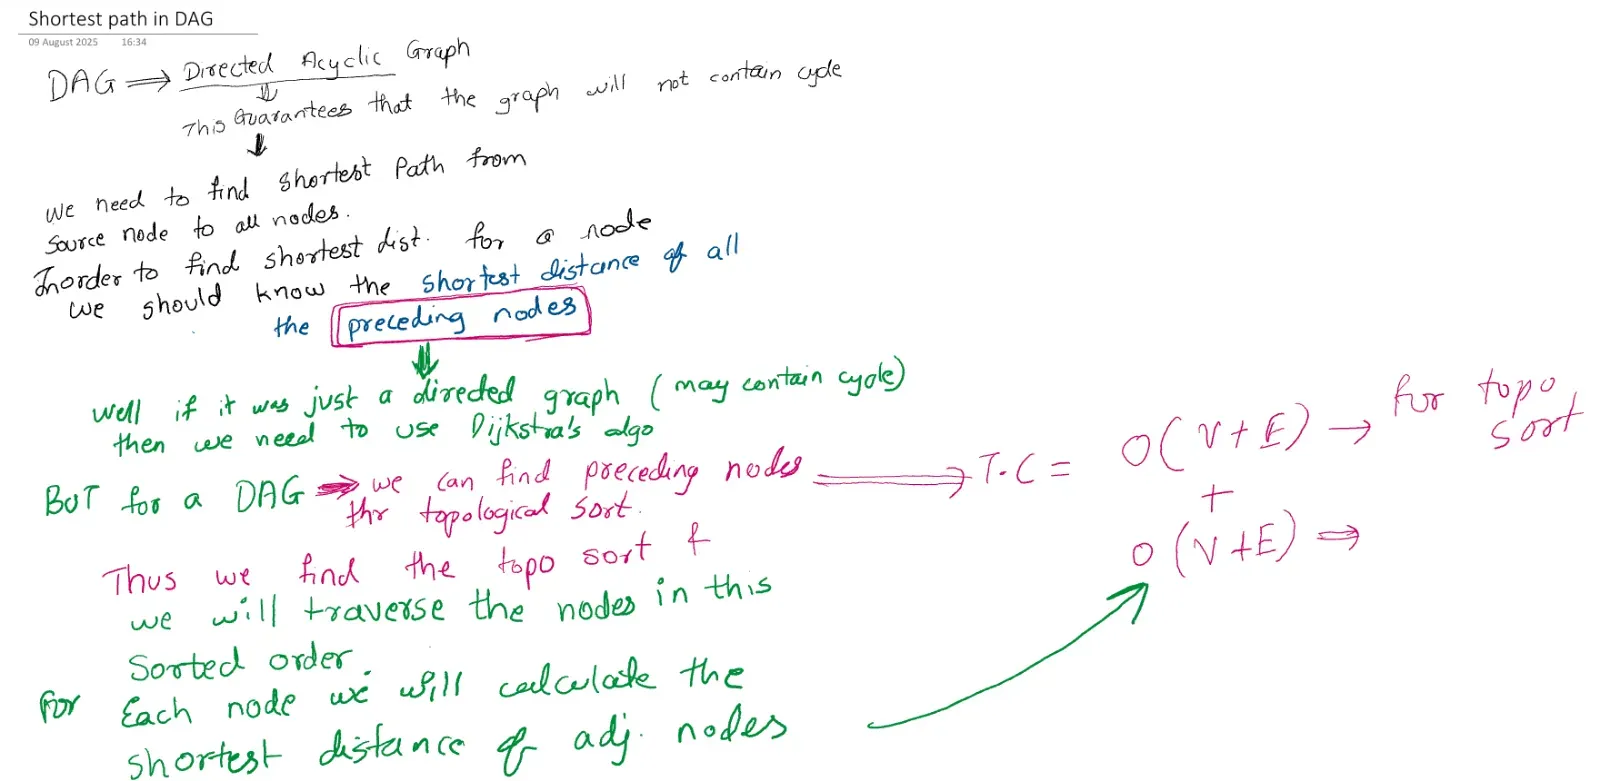 Shortest path in DAG
09 August 2025 16:34
DAG ⟹ Directed Acyclic Graph
This Guarantees that the graph will not contain cycle
We need to find shortest Path from
source node to all nodes.
Inorder to find shortest dist. for a node
we should know the shortest distance of all
the preceding nodes
Well if it was just a directed graph (may contain cycle)
then we need to use Dijkstra's algo
BUT for a DAG → we can find preceding nodes
thr topological sort.
⟹ T.C = O(V+E) → for topo
sort
+
O(V+E) ⟹
Thus we find the topo sort &
we will traverse the nodes in this
Sorted order.
For Each node we will calculate the
shortest distance of adj. nodes